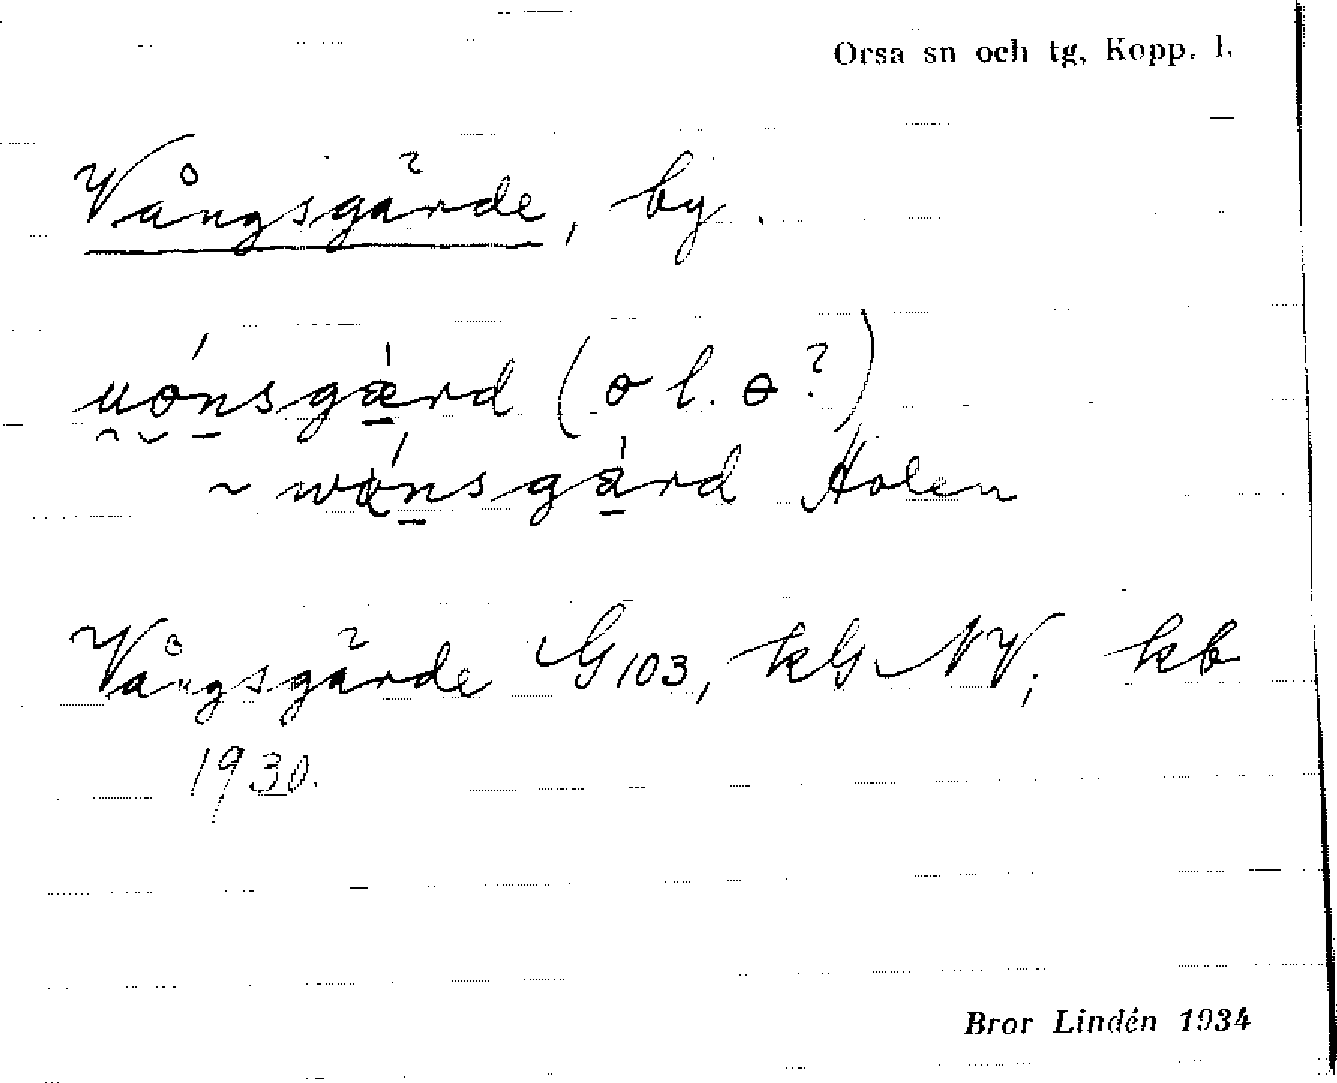 Orsa sn och tg, Kopp. l.
Vångsgärde, by.
uo̱nsgærd (o l. ɵ?)
~ wånsgärd Holen
Vångsgärde G103, kG NV; kb
1930.
Bror Lindén 1934